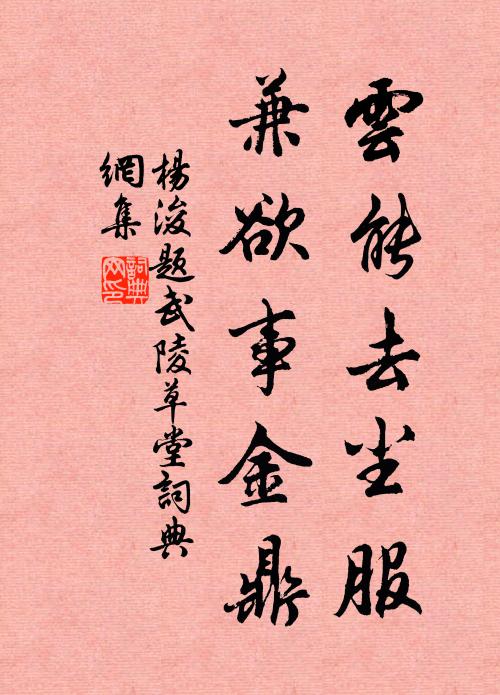 雲能去尘服
兼欲事金鼎
楊浚題武陵草堂詞典
網集
詞典網印